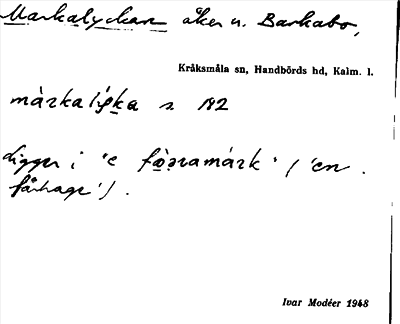 Markalyckan åker n. Barkabo,
Kråksmåla sn, Handbörds hd, Kalm. l.
màrkalýka s 192
ligger i 'e fò̱ramárk' (en
fårhage').
Ivar Modéer 1948